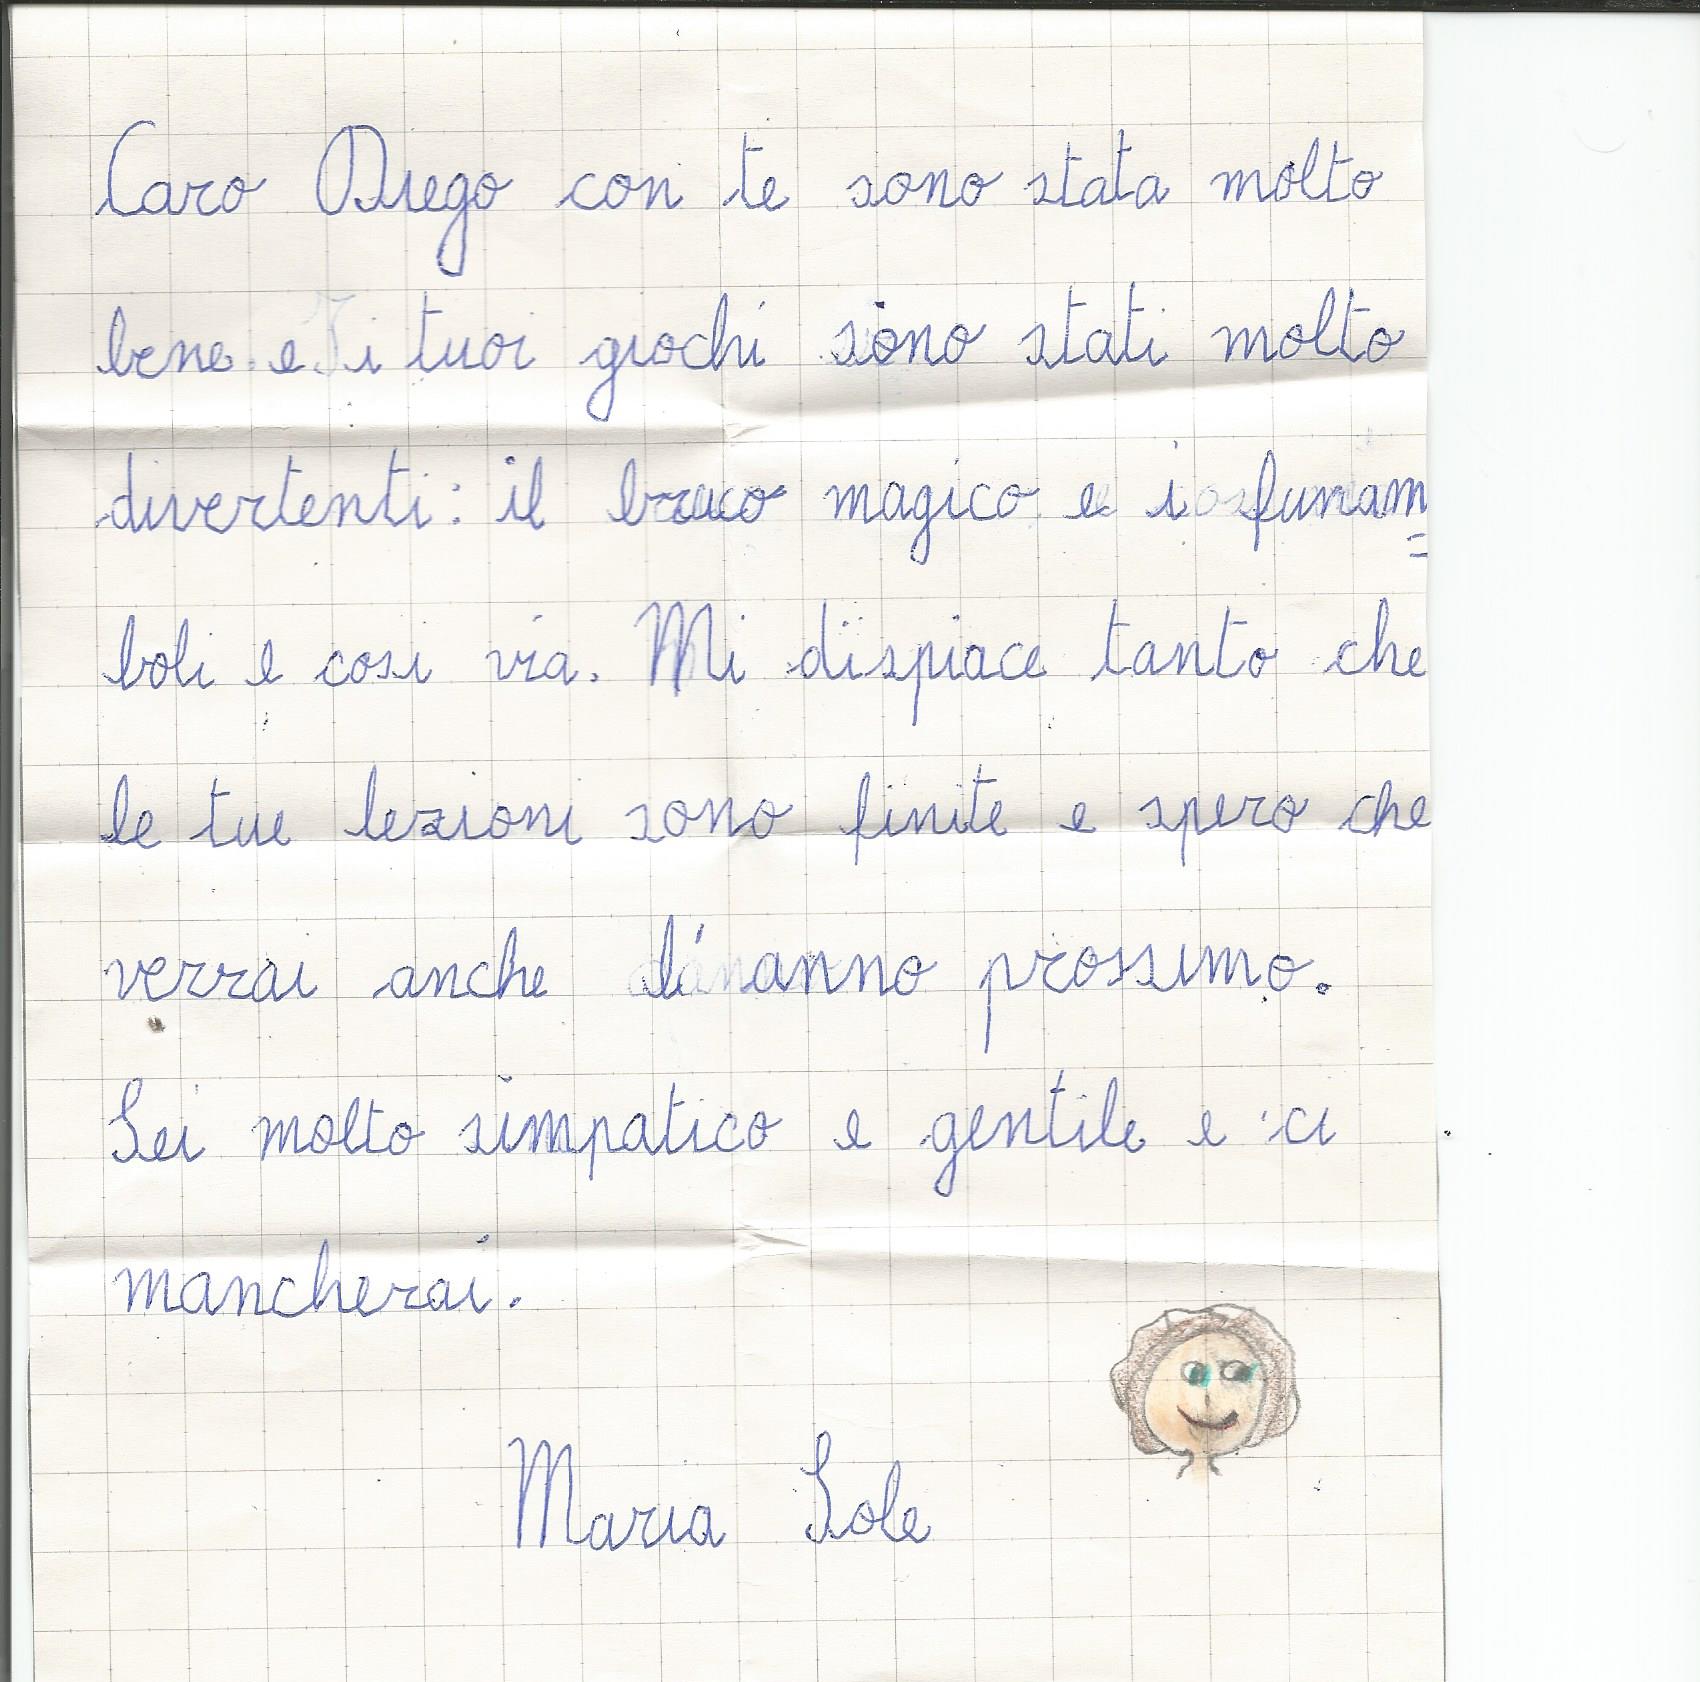 Caro Diego con te sono stata molto
bene e i tuoi giochi sono stati molto
divertenti: il bruco magico e i funam=
boli e cosi via. Mi dispiace tanto che
le tue lezioni sono finite e spero che
verrai anche l'anno prossimo.
Sei molto simpatico e gentile e ci
mancherai.
Maria Sole